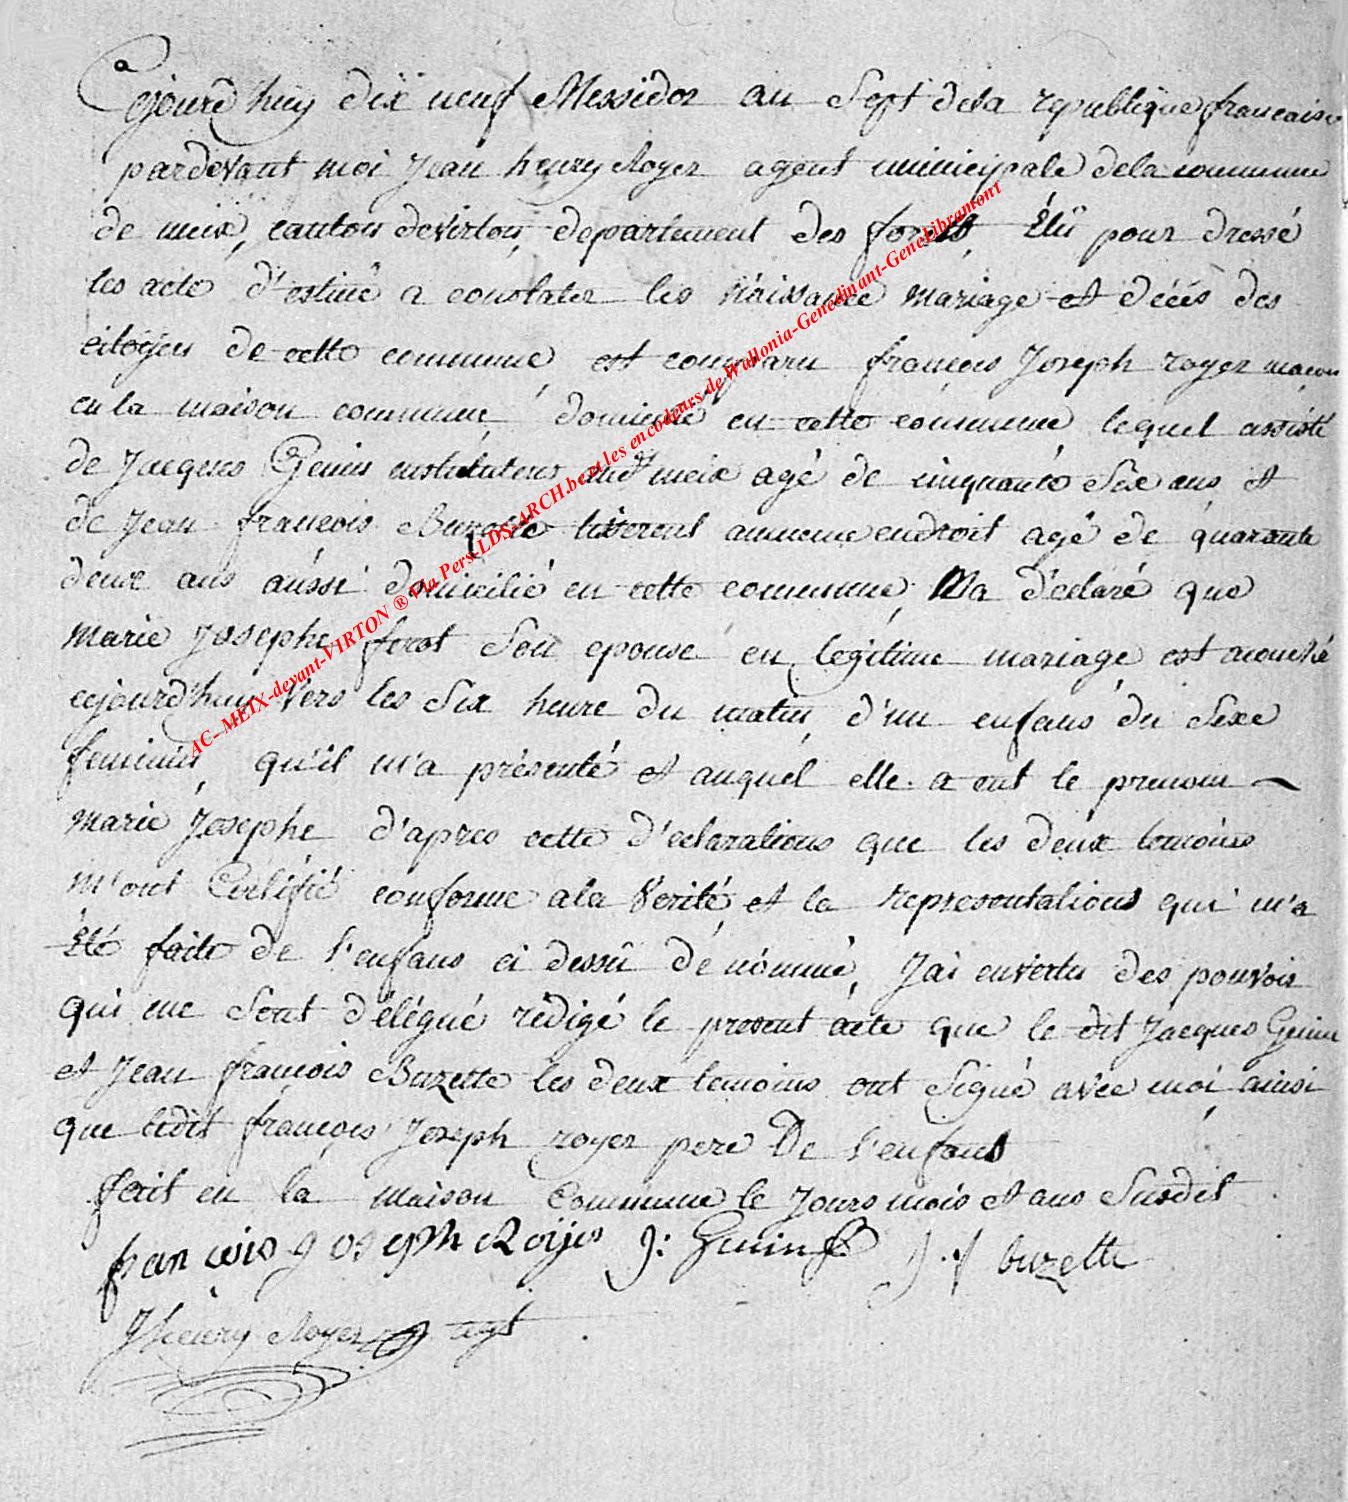 Cejourd'huy dix neuf Messidor an Sept dela republique francaise
pardevant moi Jean henry Royer agent municipale dela commune
de meix, canton devirton, departement des forets, Élü pour dressé
les acte d'estiné a constater les Naissance mariage et décés des
citoÿen de cette commune est comparu françois Joseph royer macon
en la maison commune, domicilié en cette commune, lequel assisté
de Jacques Genin instituteur audt meix agé de cinquante Six ans et
de Jean françois Buzette tisserent aumeme endroit agé de quarante
deux ans aussi domicilié en cette commune, Ma déclaré que
Marie Josephe Son epouse en legitime mariage est acouché
cejourd'huy vers les Six heure du matin d'un enfans du Sexe
feminin, qu'il m'a présenté et auquel elle a ont le prenom
Marie Josephe d'apres cette d'eclarations que les deux temoins
m'ont Certifié conforme ala Verité et la representations qui m'a
Été faite de l'enfans ci dessû dénommé, Jai envertu des pouvoir
qui me Sont délégué rédigé le present acte que le dit Jacques Genin
et Jean françois Buzette les deux temoins ont Signé avec moi ainsi
que ledit françois Joseph royer pere De l'enfans
fait en la maison Commune le Jours mois et ans Susdit
francois joseph Roijer J: Genin J. f buzette
Jhenry Royer agt
AC- MEIX-devant-VIRTON ® Via Pers-LDS-ARCH.be et les encodeurs de Wallonia-Genedinant-GeneLibramont